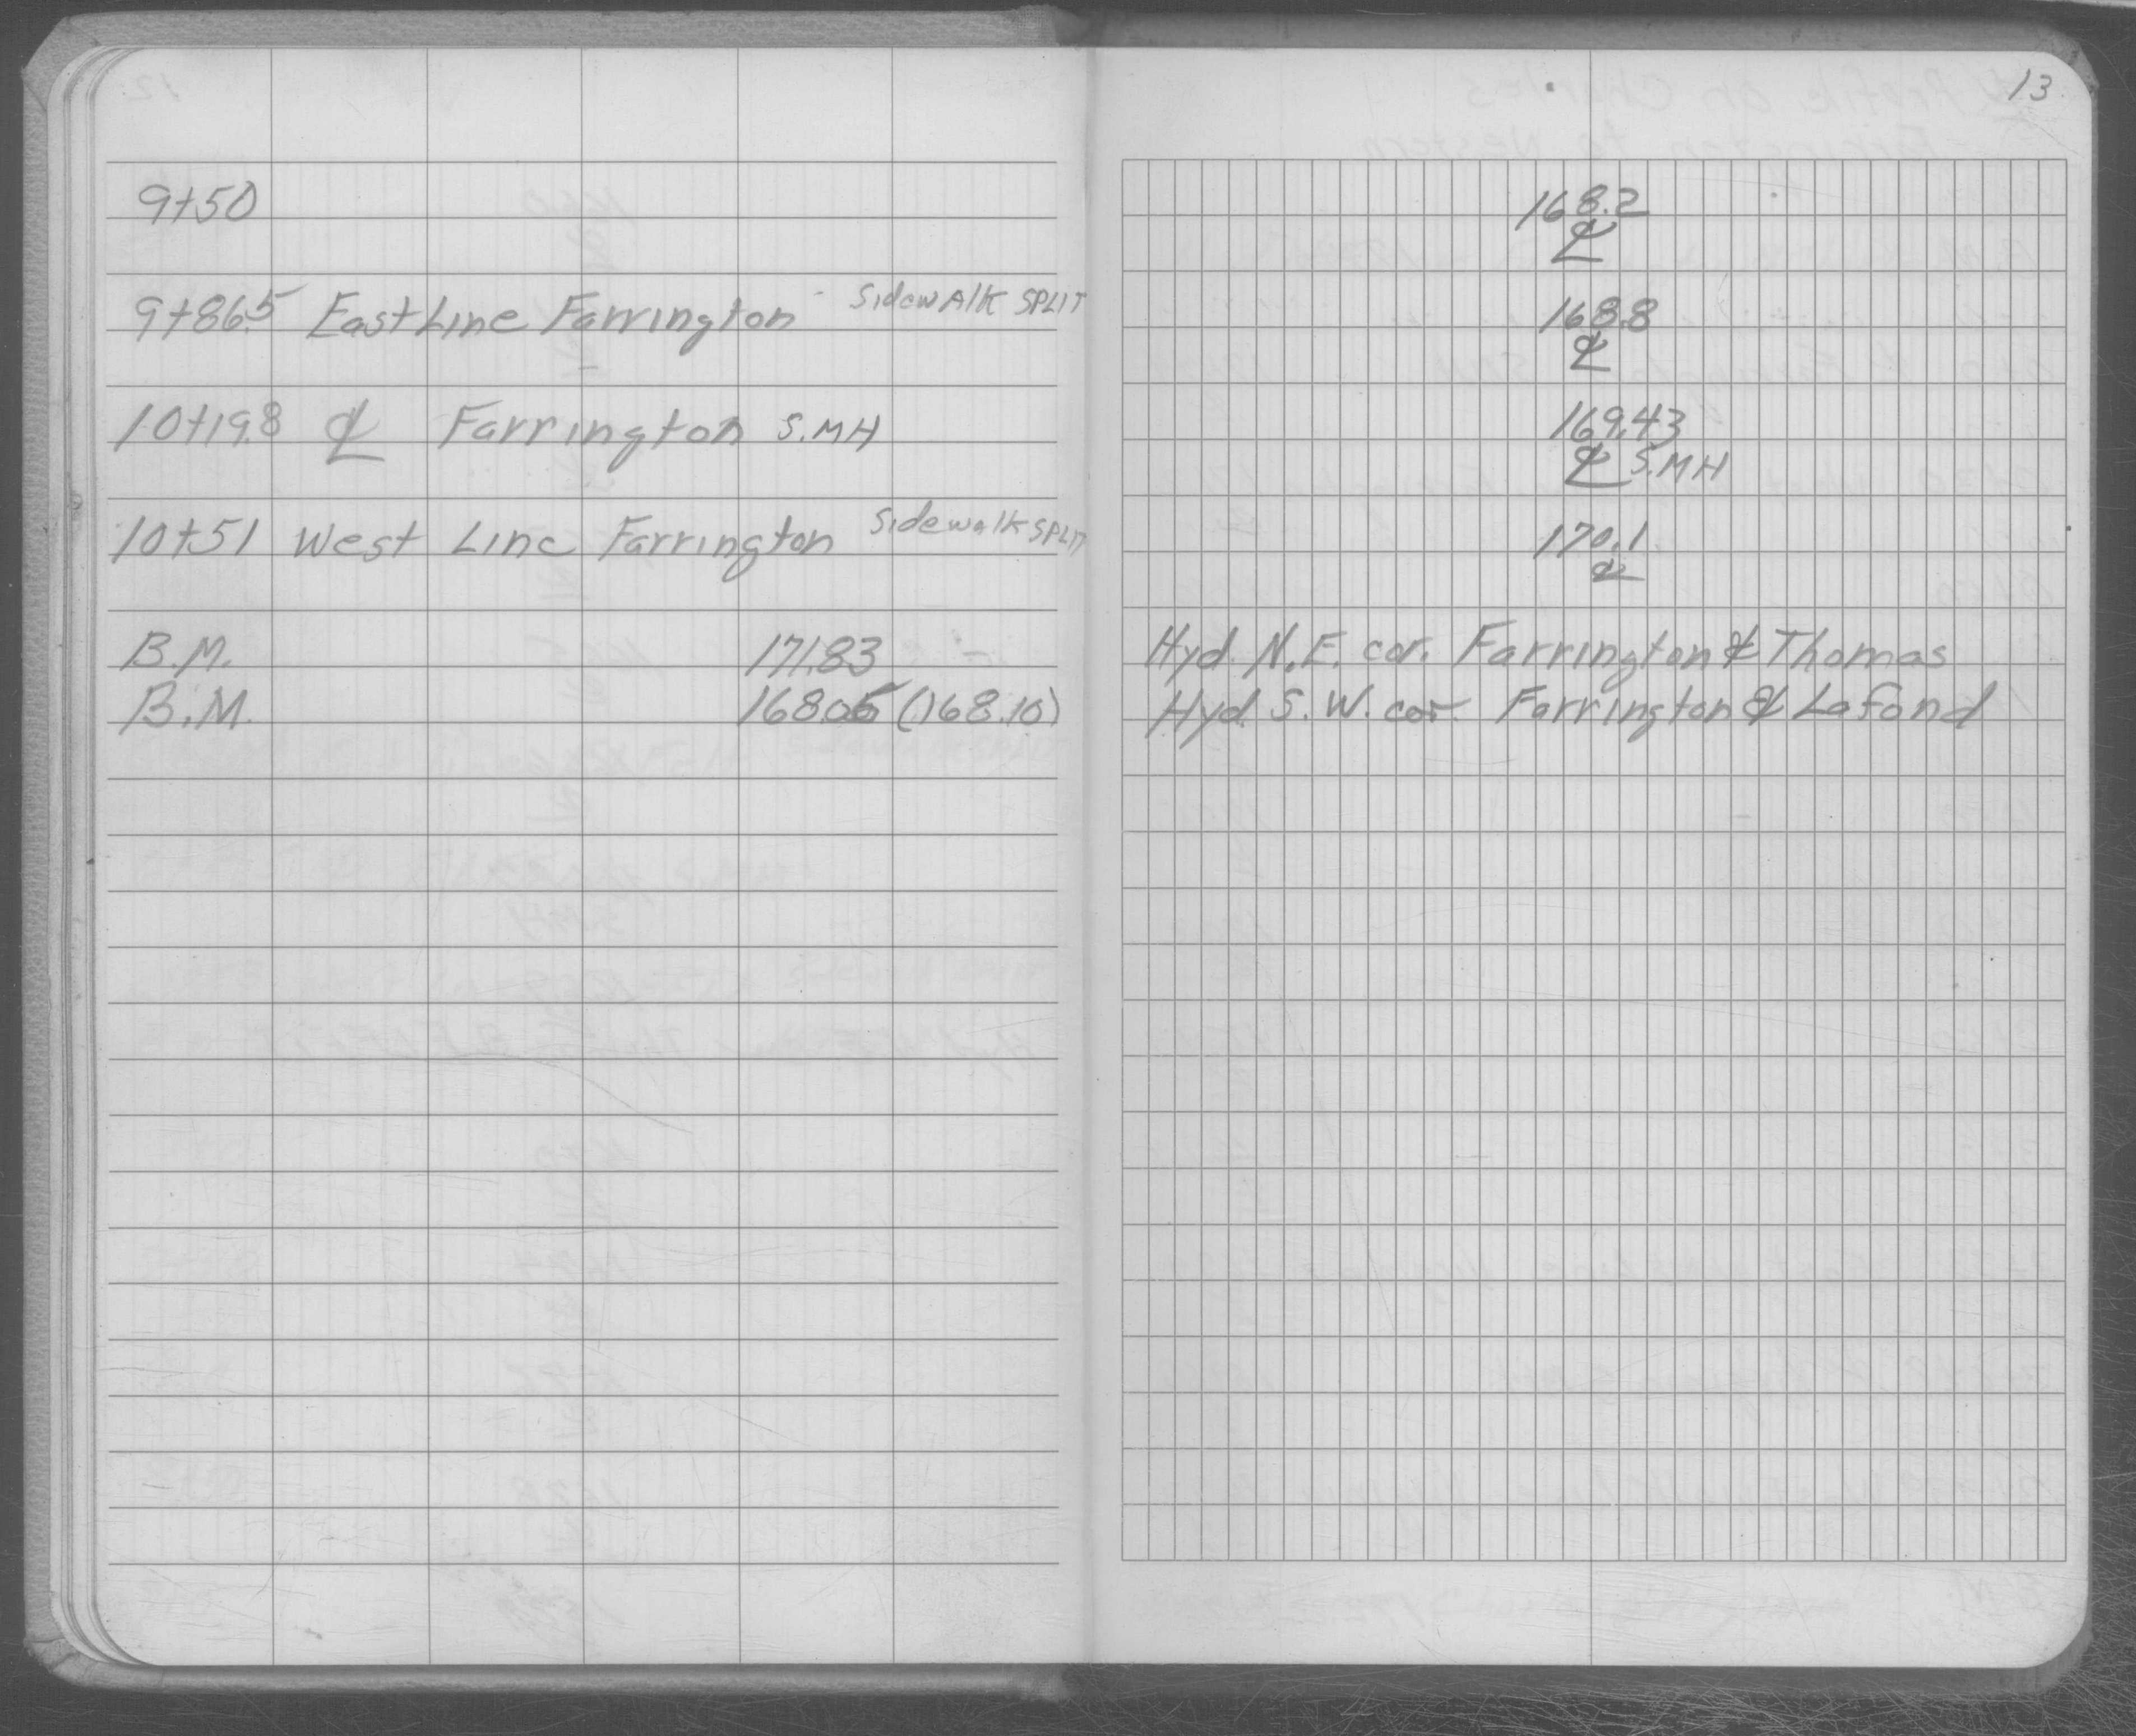 13
9+50 168.2
℄
9+86.5 East Line Farrington Sidewalk SPLIT 168.8
℄
10+19.8 ℄ Farrington S.MH 169.43
℄ S.MH
10+51 West Line Farrington Sidewalk SPLIT 170.1
℄
B.M. 171.83 Hyd. N.E. cor. Farrington & Thomas
B.M. 168.05 (168.10) Hyd. S.W. cor. Farrington & Lafond